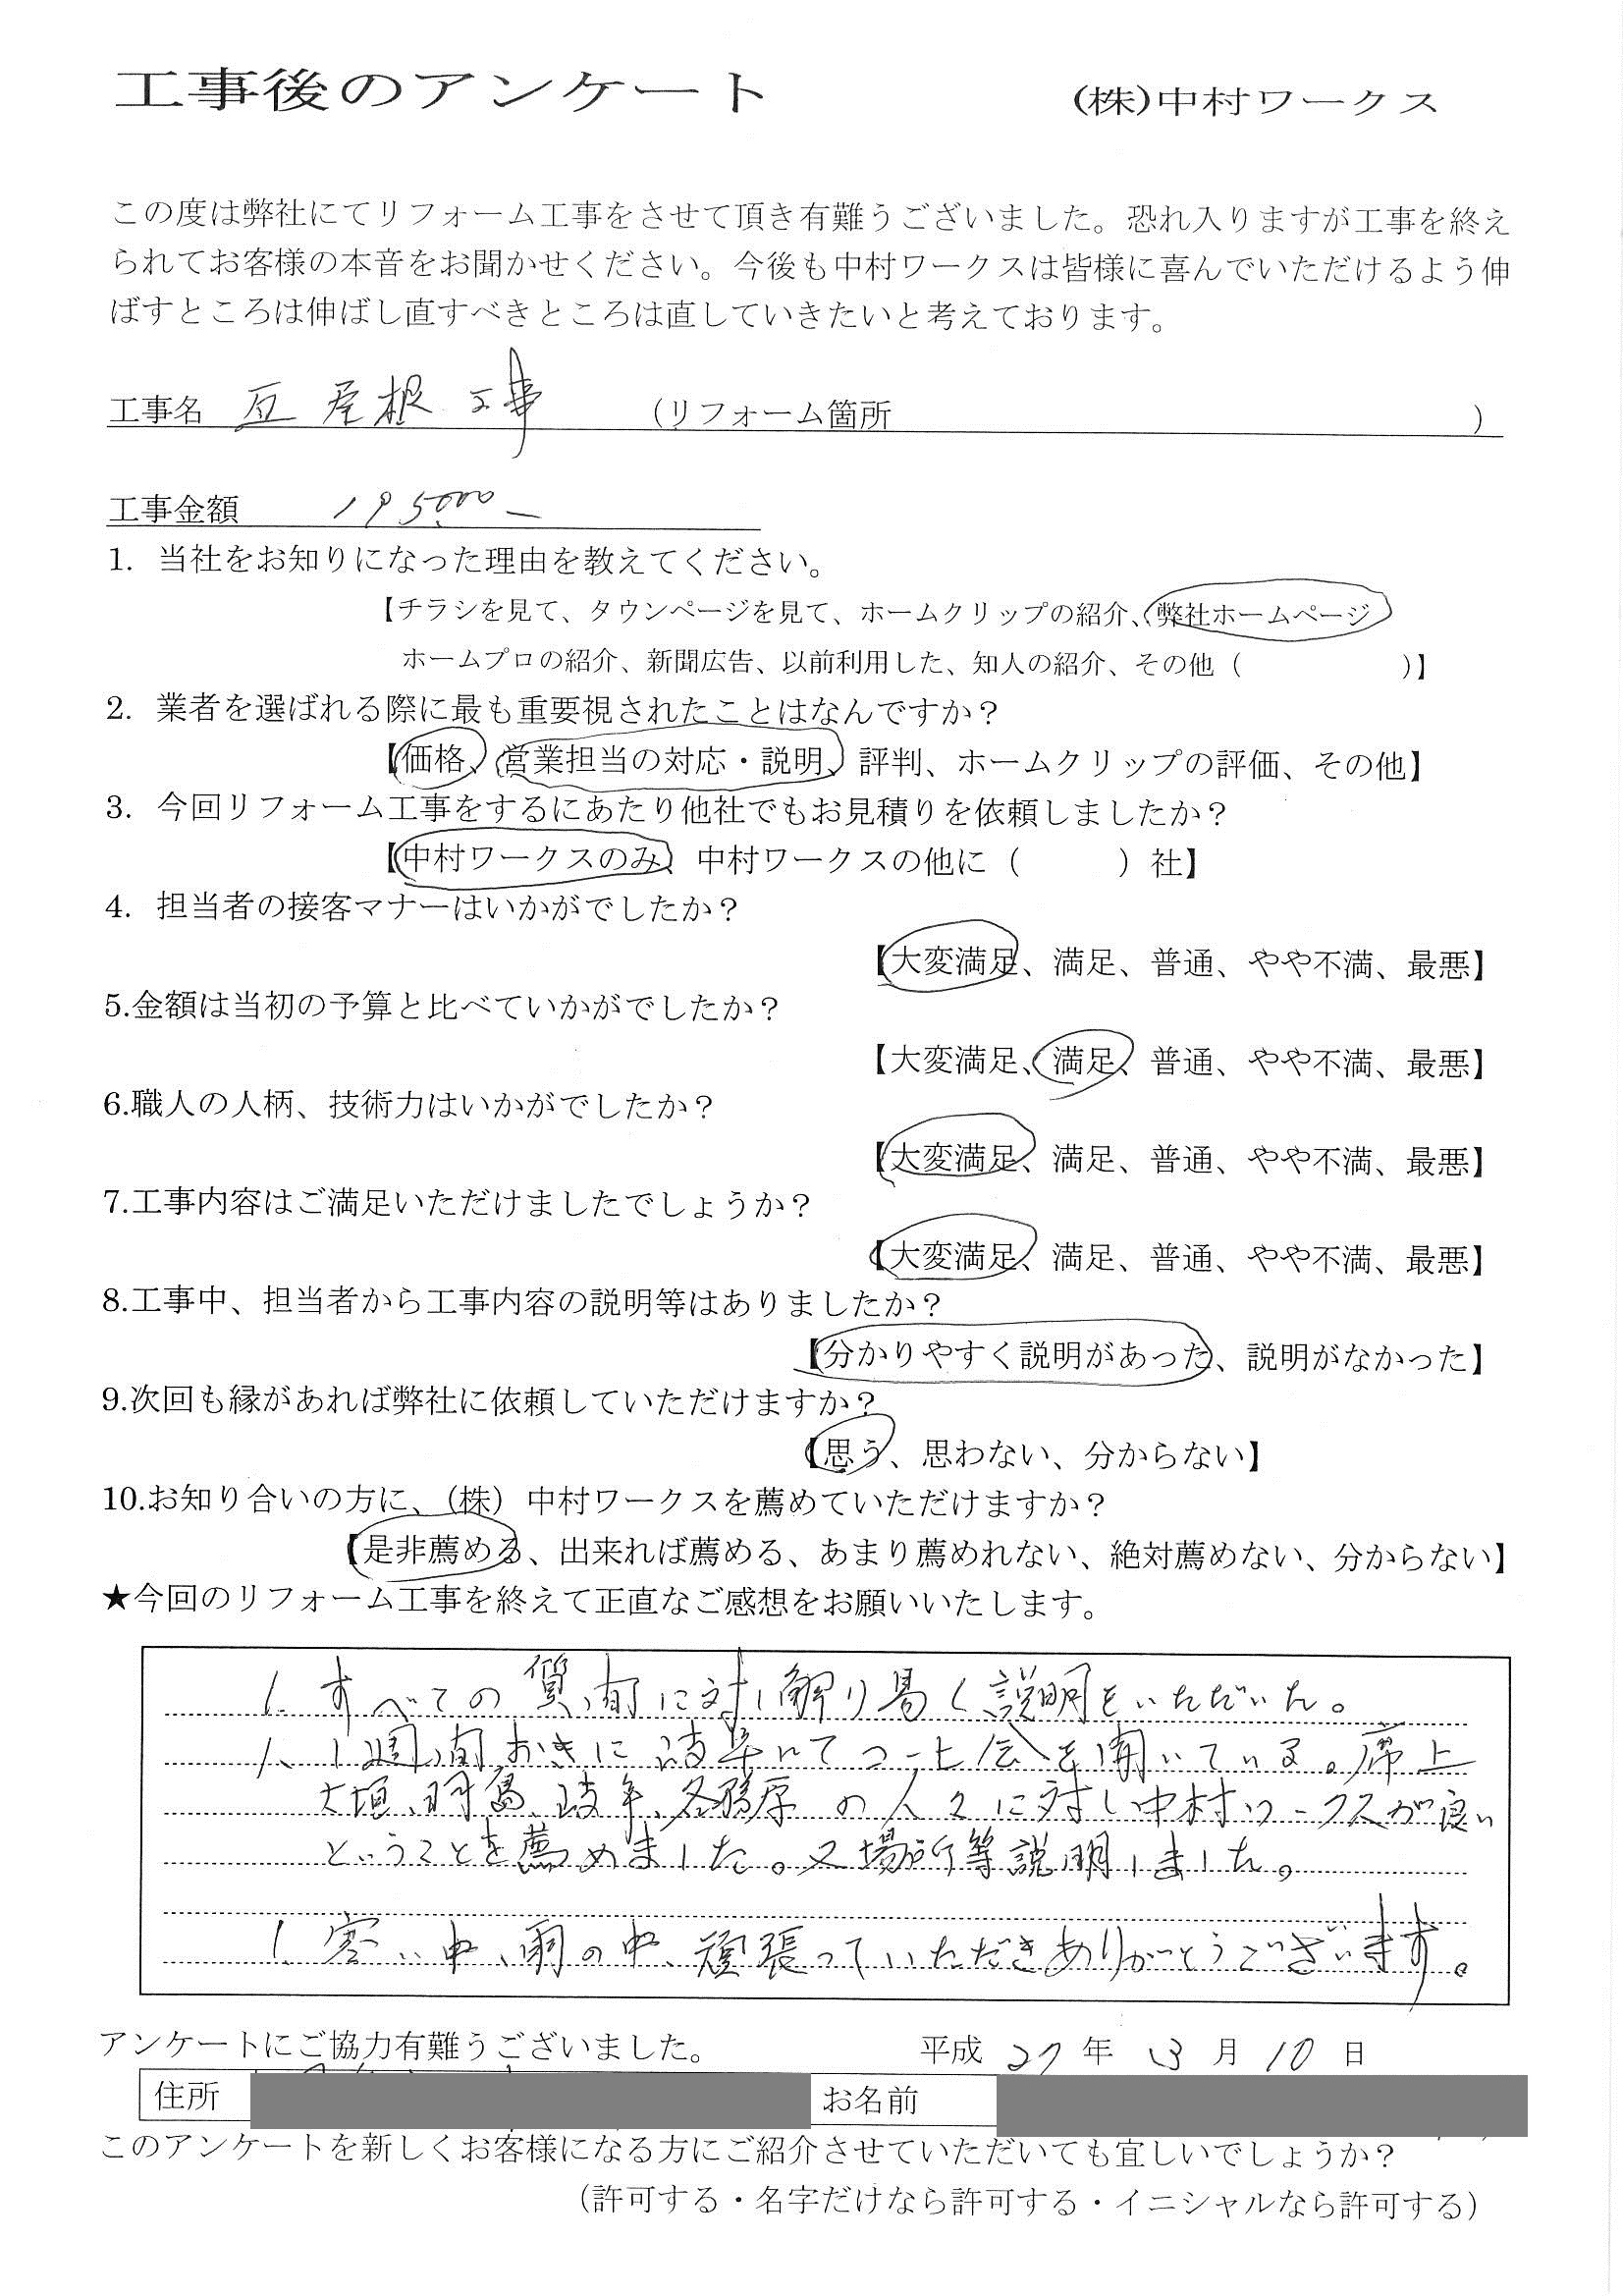 工事後のアンケート (株)中村ワークス
この度は弊社にてリフォーム工事をさせて頂き有難うございました。恐れ入りますが工事を終え
られてお客様の本音をお聞かせください。今後も中村ワークスは皆様に喜んでいただけるよう伸
ばすところは伸ばし直すべきところは直していきたいと考えております。
工事名 瓦屋根工事 (リフォーム箇所 )
工事金額 195,000-
1. 当社をお知りになった理由を教えてください。
【チラシを見て、タウンページを見て、ホームクリップの紹介、弊社ホームページ
ホームプロの紹介、新聞広告、以前利用した、知人の紹介、その他( )】
2. 業者を選ばれる際に最も重要視されたことはなんですか？
【価格、営業担当の対応・説明、評判、ホームクリップの評価、その他】
3. 今回リフォーム工事をするにあたり他社でもお見積りを依頼しましたか？
【中村ワークスのみ、中村ワークスの他に( )社】
4. 担当者の接客マナーはいかがでしたか？
【大変満足、満足、普通、やや不満、最悪】
5.金額は当初の予算と比べていかがでしたか？
【大変満足、満足、普通、やや不満、最悪】
6.職人の人柄、技術力はいかがでしたか？
【大変満足、満足、普通、やや不満、最悪】
7.工事内容はご満足いただけましたでしょうか？
【大変満足、満足、普通、やや不満、最悪】
8.工事中、担当者から工事内容の説明等はありましたか？
【分かりやすく説明があった、説明がなかった】
9.次回も縁があれば弊社に依頼していただけますか？
【思う、思わない、分からない】
10.お知り合いの方に、(株)中村ワークスを薦めていただけますか？
【是非薦める、出来れば薦める、あまり薦めれない、絶対薦めない、分からない】
★今回のリフォーム工事を終えて正直なご感想をお願いいたします。
1. すべての質問に対し解り易く説明をいただいた。
1. 1週間おきに岐阜にてコーヒ会を開いている。席上
大垣、羽島、岐阜、各務原の人々に対し中村ワークスが良い
ということを薦めました。又場所等説明しました。
1. 寒い中、雨の中、頑張っていただきありがとうございます。
アンケートにご協力有難うございました。 平成 27 年 3 月 10 日
住所 お名前
このアンケートを新しくお客様になる方にご紹介させていただいても宜しいでしょうか？
(許可する・名字だけなら許可する・イニシャルなら許可する)